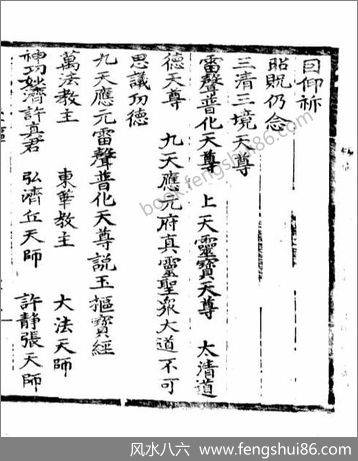 回仰祈
貺既仍念
三清三境天尊
雷聲普化天尊 上天靈寶天尊 太清道
德天尊 九天應元府真靈聖衆大道不可
思議功德
九天應元雷聲普化天尊説玉樞寶經
萬法教主 東華教主 大法天師
神功妙濟許真君 弘濟丘天師 許靜張天師
book.fengshui86.com
风水八六 www.fengshui86.com